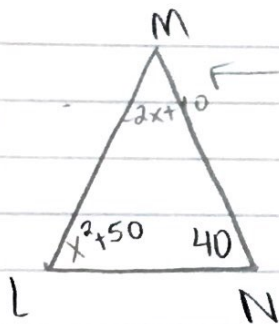 M
2x+10
x²+50 40
L N